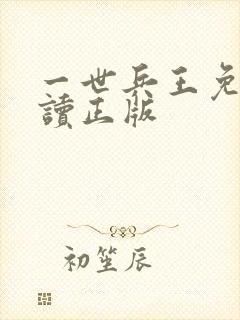 一世兵王免
讀正版
初笙辰